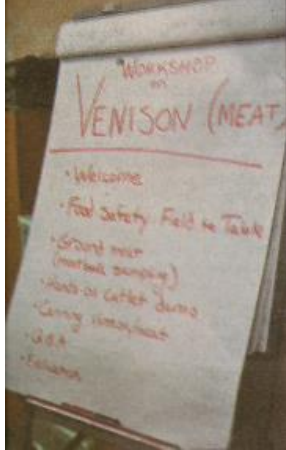 WORKSHOP
on
VENISON (MEAT)
• Welcome
• Food Safety Field to Table
• Ground meat
(meatball sampling)
• Hands-on cutlet demo
• Canning venison/meat
• Q & A
• Evaluation